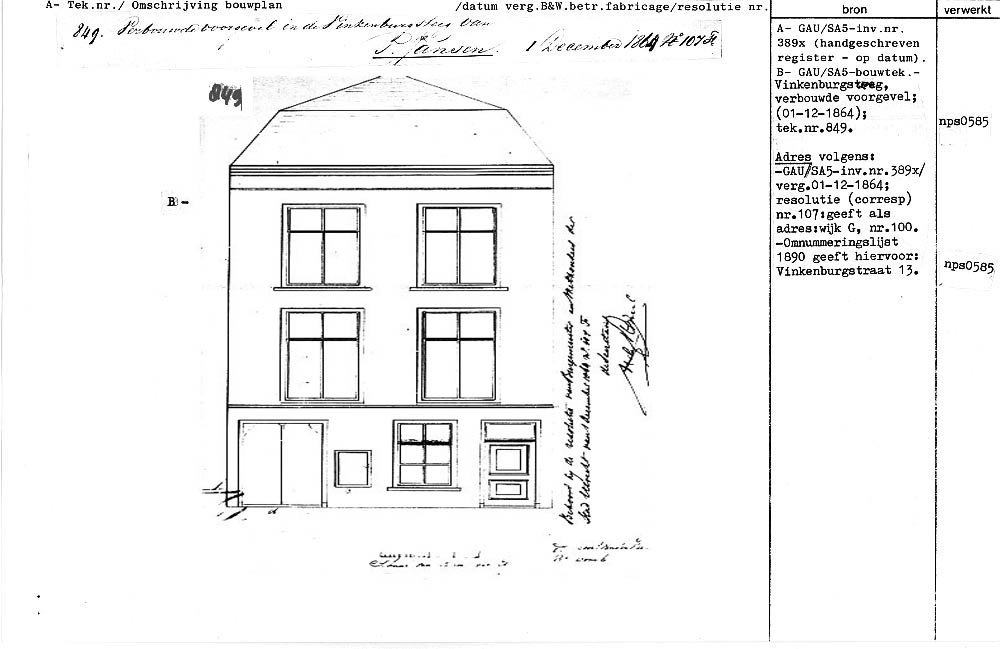 A- Tek.nr./ Omschrijving bouwplan /datum verg.B&W.betr.fabricage/resolutie nr.
849. Verbouwde voorgevel in de Vinkenburgsteeg van
P. Jansen. 1 December 1864 No 107
849
B -
Behoort bij de resolutie van Burgemeester en Wethouders der
Stad Utrecht van 1 December 1864
de Secretaris
bron
A- GAU/SA5-inv.nr.
389x (handgeschreven
register - op datum).
B- GAU/SA5-bouwtek.-
Vinkenburgsteeg,
verbouwde voorgevel;
(01-12-1864);
tek.nr.849.
Adres volgens:
-GAU/SA5-inv.nr.389x/
verg.01-12-1864;
resolutie (corresp)
nr.107:geeft als
adres:wijk G, nr.100.
-Omnummeringslijst
1890 geeft hiervoor:
Vinkenburgstraat 13.
verwerkt
nps0585
nps0585